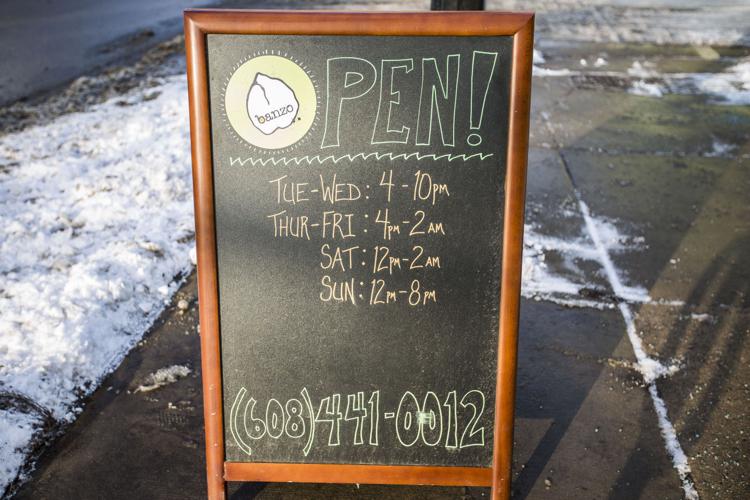 banzo
OPEN!
TUE-WED: 4-10PM
THUR-FRI: 4PM-2AM
SAT: 12PM-2AM
SUN: 12PM-8PM
(608)441-0012